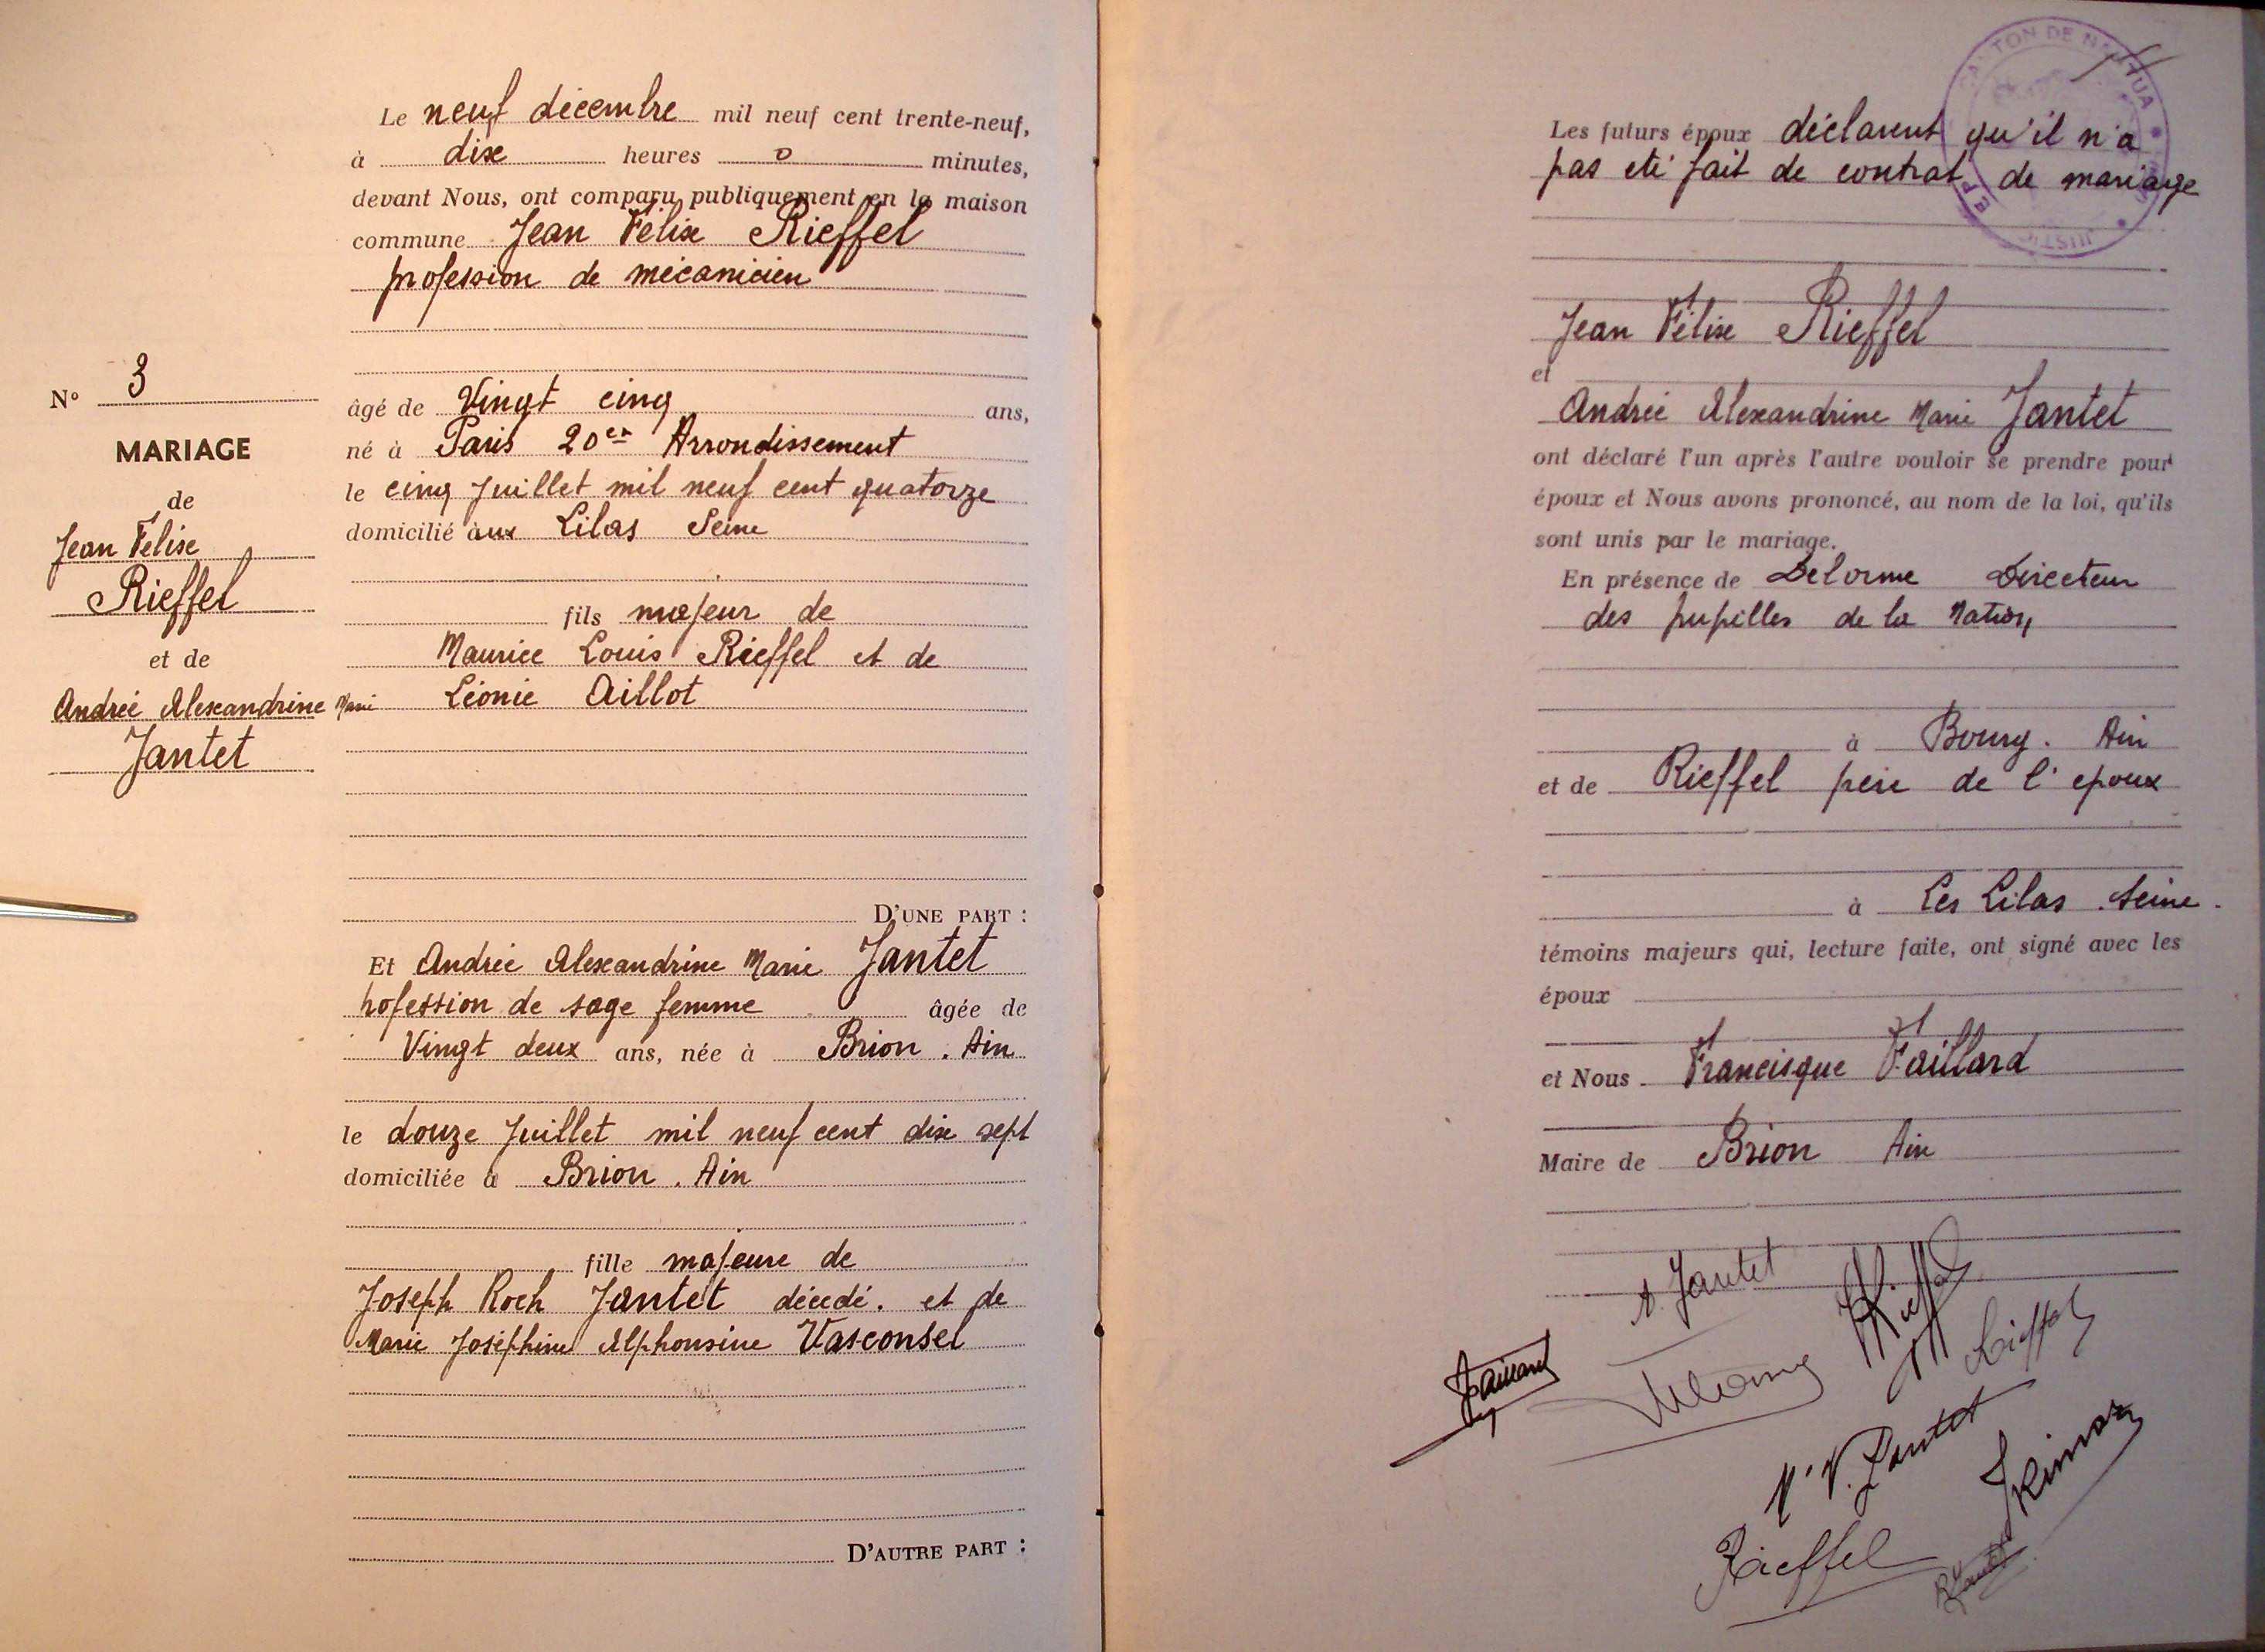 Le neuf décembre mil neuf cent trente-neuf,
à dix heures 0 minutes,
devant Nous, ont comparu publiquement en la maison
commune Jean Félix Rieffel
profession de mécanicien
N° 3
MARIAGE
de
Jean Félix
Rieffel
et de
Andrée Alexandrine Marie
Jantet
âgé de Vingt cinq ans,
né à Paris 20er Arrondissement
le cinq Juillet mil neuf cent quatorze
domicilié aux Lilas Seine
fils majeur de
Maurice Louis Rieffel et de
Léonie Aillot
D'UNE PART :
Et Andrée Alexandrine Marie Jantet
profession de sage femme âgée de
Vingt deux ans, née à Brion. Ain
le douze Juillet mil neuf cent dix sept
domiciliée à Brion. Ain
fille majeure de
Joseph Roch Jantet décédé. et de
Marie Joséphine Alphonsine Vasconsel
D'AUTRE PART :
CANTON DE NANTUA
Les futurs époux déclarent qu'il n'a
pas été fait de contrat de mariage
Jean Félix Rieffel
et
Andrée Alexandrine Marie Jantet
ont déclaré l'un après l'autre vouloir se prendre pour
époux et Nous avons prononcé, au nom de la loi, qu'ils
sont unis par le mariage.
En présence de Delorme Directeur
des pupilles de la Nation
à Bourg. Ain
et de Rieffel père de l'epoux
à Les Lilas. Seine.
témoins majeurs qui, lecture faite, ont signé avec les
époux
et Nous Francisque Faillard
Maire de Brion Ain
A. Jantet
Rieffel
Rieffel
Faillard
Vve Jantet
Rieffel